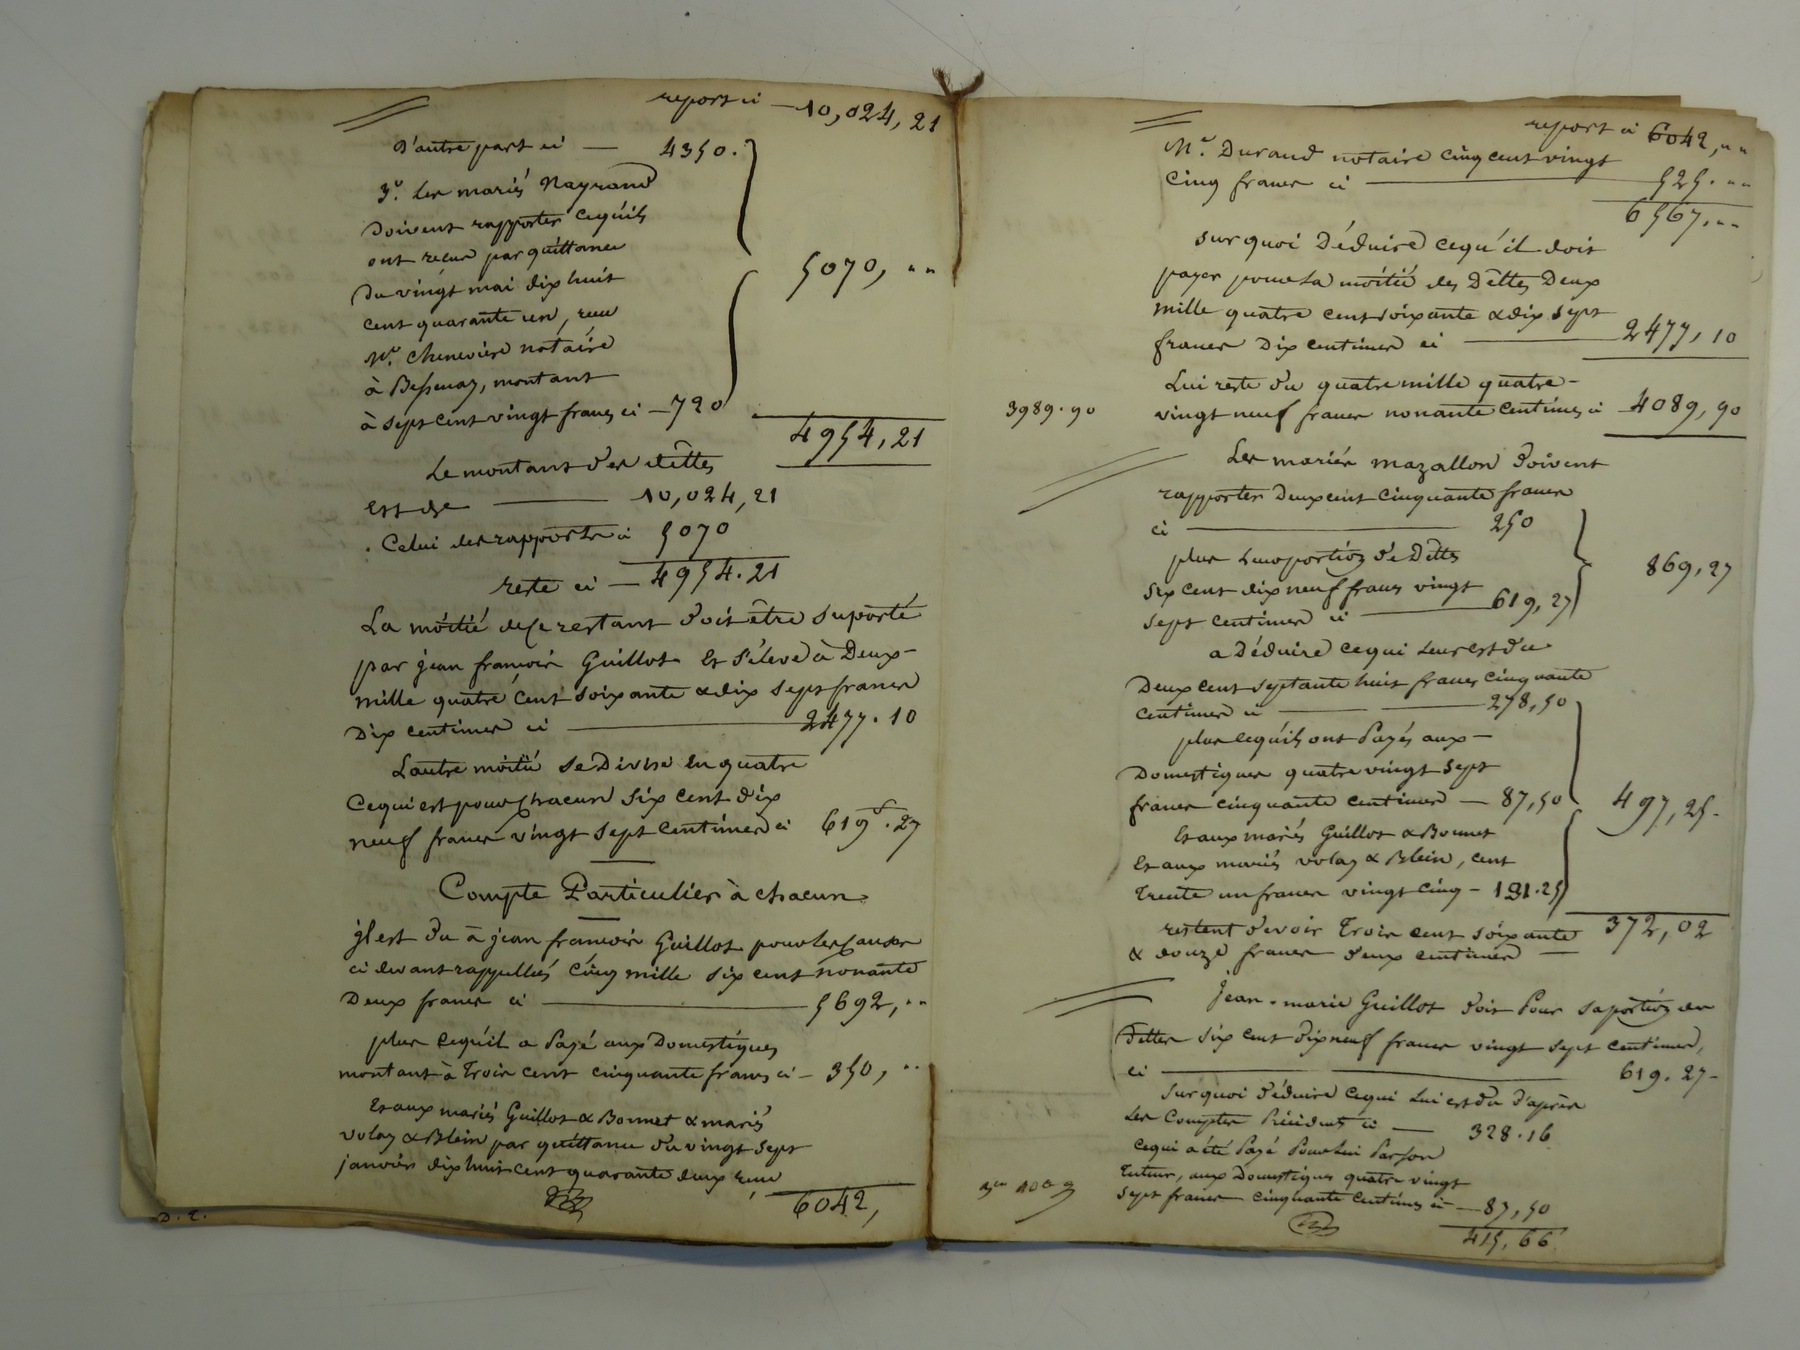 report ci — 10,024,21
D'autre part ci — 4350.
3° Les mariés Nayrand
Doivent rapporter cequ'ils
ont recus par quittance
Du vingt mai dix huit
cent quarante un, recu
Me. Chenevière notaire
à Bessenay, montant
à sept cent vingt francs ci — 720
5070, "
4954,21
Le montant des dettes
Est de — 10,024,21
. Celui des rapports ci 5070
reste ci — 4954.21
La moitié dece restant doit être suporté
par jean francois Guillot Et s'éleve à Deux-
mille quatre cent soixante & dix sept francs
Dix centimes ci — 2477.10
L'autre moitié se Divise En quatre
Cequi est pour chacun six cent dix
neuf francs vingt sept centimes ci 619f.27
Compte Particulier à chacun
jl est du à jean francois Guillot pour les causes
ci devant rappellées cinq mille six cent nonante
Deux francs ci — 5692, "
plus cequ'il a Payé aux Domestiques
montant à Trois cent cinquante francs ci — 350, "
Et aux mariés Guillot & Bonnet & mariés
Volay & Blein par quittance du vingt sept
janvier dix huit cent quarante deux recu
6042,
D. L.
report ci 6042, "
Me. Durand notaire cinq cent vingt
cinq francs ci — 525. "
6567. "
sur quoi Déduire cequ'il doit
payer pour la moitié des Dettes Deux
mille quatre cent soixante & dix sept
francs Dix centimes ci — 2477,10
Lui reste du quatre mille quatre-
3989.90 vingt neuf francs nonante centimes ci — 4089,90
Les mariés mazallon doivent
rapporter Deux cent cinquante francs
ci — 250
plus Leur portion de Dettes
six cent dix neuf francs vingt
sept centimes ci — 619,27
869,27
a Déduire cequi Leur est du
Deux cent septante huit francs cinquante
centimes ci — 278,50
plus cequ'ils ont Payés aux —
Domestiques quatre vingt sept
francs cinquante centimes — 87,50
497,25.
Et aux mariés Guillot & Bonnet
Et aux mariés volay & Blein, cent
Trente un francs vingt cinq — 131.25
restent devoir Trois cent soixante 372,02
& douze francs deux centimes —
Jean-marie Guillot doit Pour saportion des
Dettes six cent dix neuf francs vingt sept centimes,
ci — 619.27-
sur quoi déduire cequi Lui est du d'après
Les Comptes Précédents ci — 328.16
cequi a été Payé Pour Lui Par son
Tuteur, aux Domestiques quatre vingt
sept francs cinquante centimes ci — 87,50
415,66